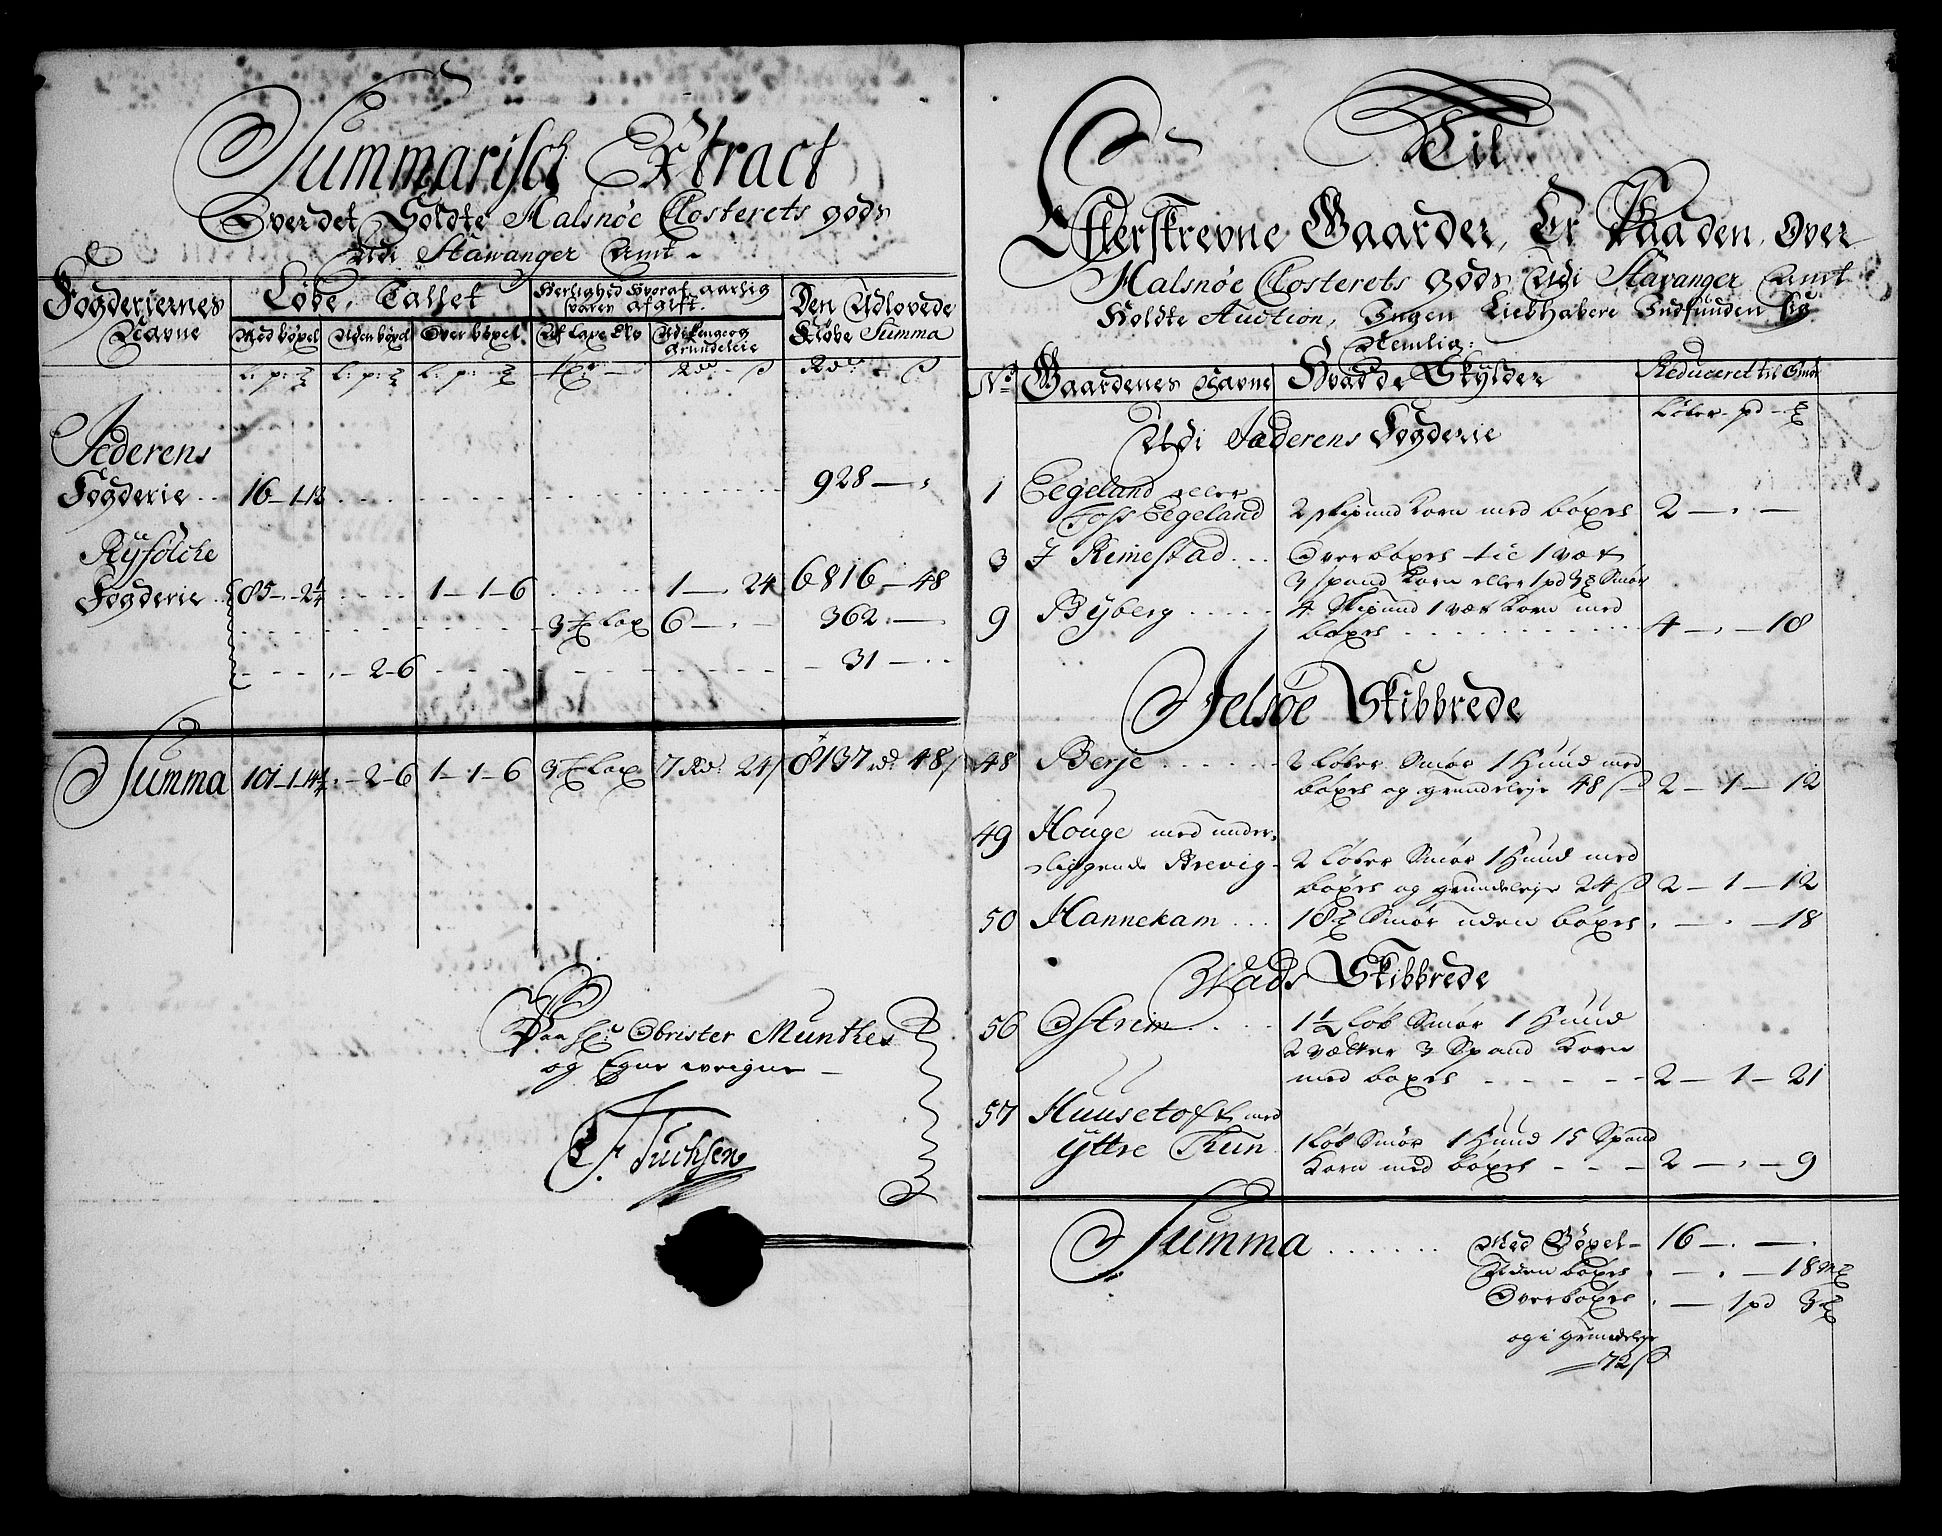 Summarisch Extract
Over det Holdte Malsnøe Closterets gods
Udi Stawanger Amt
Fogderiernes Navne
Løbe Tallet
Herlighed hvoraf aarlig svares afgift.
Den Udlovede Kiøbe Summa
Med bøxel Uden bøxel Over bøxel Af Laxe Elv Udi Penge og Grundeleie
l: p: l: p: l: p: Rdr ß Rdr ß
Jederens
Fogderie 16 - 1 - 12 928 -
Ryfølche
Fogderie 85 - 2¼ 1 - 1 - 6 1 - 24 6816 - 48
3 Lax 6 - 362 -
2 - 6 31 -
Summa 101 - 1 - 14¼ 2 - 6 1 - 1 - 6 3 Lax 7 Rdr 24 ß 8137 rdr 48 ß
Paa Hr Obrister Munthes
og Egne weigne
F. Tuchsen
Til
Efterskrevne Gaarder, Er Paa den Over
Malsnøe Closterets gods Udi Stavanger Amt
Holdte Auction, Ingen Liebhabere Indfunden Sig
Nemlig:
No Gaardenes Navne Hvad de Skylder Reduceret til Smør
Løber pd
Udi Jæderens Fogderie
1 Eegeland eller
Foss Eegeland 2 skipund Korn med bøxel 2 -
3 I Reimestad Overbøxel til 1 væt
3 spand Korn eller 1 pd 3 Smør
9 Byberg 4 Skipund 1 væt Korn med
bøxel 4 - 18
Jelsøe Skibbrede
48 Berje 2 Løber Smør 1 Huud med
bøxel og grundeleje 48 ß 2 - 1 - 12
49 Houge med under-
liggende Brevig 2 Løber Smør 1 Huud med
bøxel og grundeleje 24 ß 2 - 1 - 12
50 Hannekam 18 Smør uden bøxel 18
Wads Skibbrede
56 Østrem 1½ Løb Smør 1 Huud
2 vætter 3 Spand Korn
med bøxel 2 - 1 - 21
57 Huusetoft med
Yttre Thun 1 Løb Smør 1 Huud 15 Spand
Korn med bøxel 2 - 9
Summa Med Bøxel 16 -
Uden bøxel 18
Overbøxel 1 pd 3
og i grundeleje
72 ß